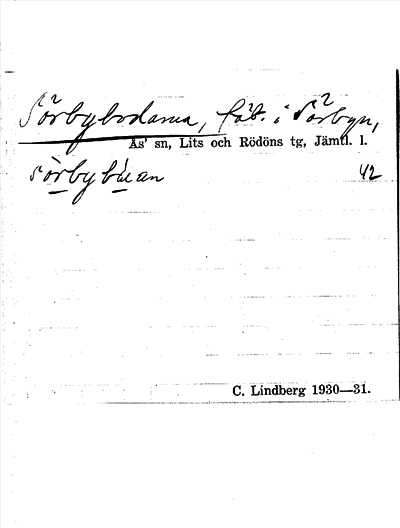 Sörbybodarna, fäb. i Sörbyn,
Ås' sn, Lits och Rödöns tg, Jämtl. l.
sòrbybúan 42
C. Lindberg 1930—31.